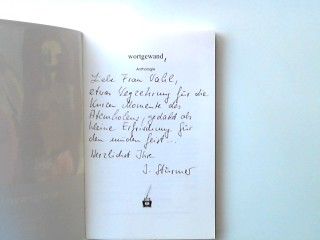 wortgewand,
Anthologie
Liebe Frau Vahl,
etwas Wegzehrung für die
kurzen Momente des
Atemholens, gedacht als
kleine Erfrischung für
den müden Geist...
Herzlichst Ihre
J. Stürmer